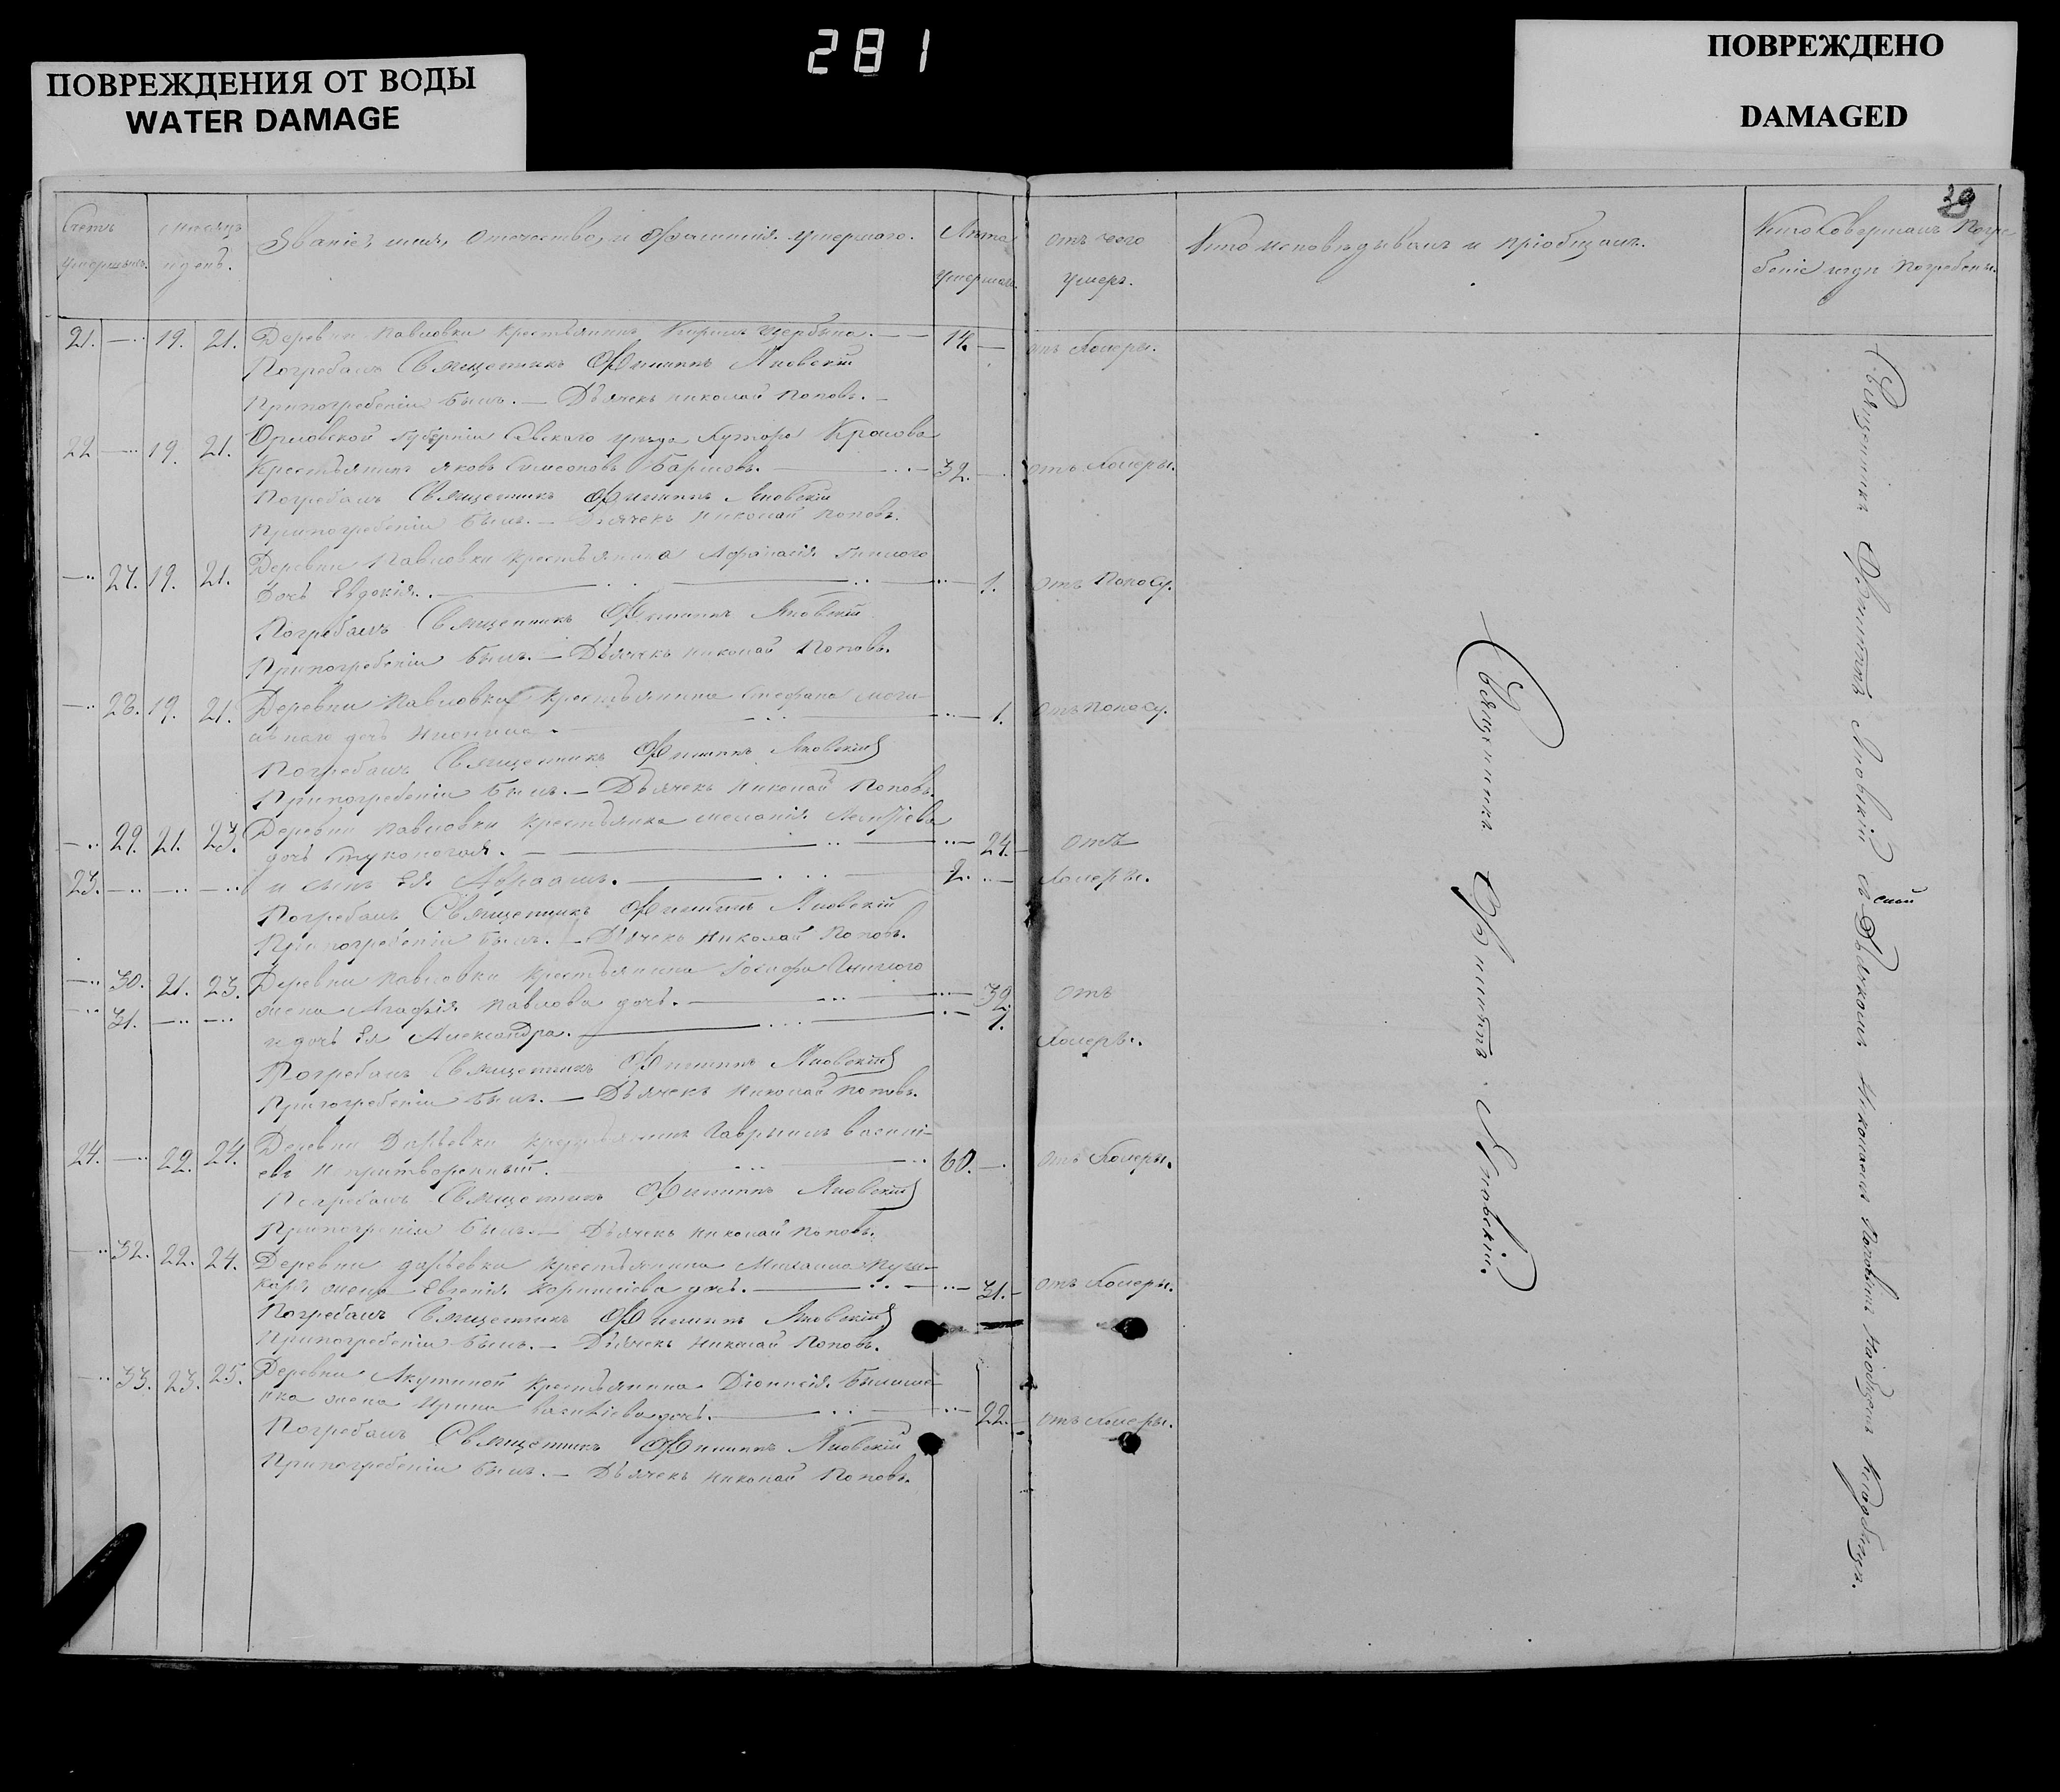 281
ПОВРЕЖДЕНИЯ ОТ ВОДЫ
WATER DAMAGE
ПОВРЕЖДЕНО
DAMAGED
39
Счетъ умершихъ.
Мѣсяцъ и день.
Званіе, имя, отечество, и фамилія умершаго.
Лѣта умершаго.
отъ чего умеръ.
Кто исповѣдывалъ и пріобщалъ.
Кто совершалъ Погребеніе и гдѣ погребены.
21. — 19. 21. Деревни Павловки крестьянинъ Кирилъ Щербина. — отъ Холеры.
Погребалъ Священникъ Филиппъ Яновскій
Припогребеніи былъ. — Дьячекъ Николай Поповъ.
22 — 19. 21. Орловской губерніи Севскаго уѣзда Хутора
Крестьянинъ Яковъ Симеоновъ — 32. — отъ Холеры.
Погребалъ Священникъ Филиппъ Яновскій
Припогребеніи былъ. — Дьячекъ Николай Поповъ.
— 27. 19. 21. Деревни Павловки крестьянина Афанасія Гнилого
дочь Евдокія. — 1. отъ Поносу.
Погребалъ Священникъ Филиппъ Яновскій
Припогребеніи былъ. — Дьячекъ Николай Поповъ.
— 28. 19. 21. Деревни Павловки крестьянина Стефана
дочь — 1. отъ Поносу.
Погребалъ Священникъ Филиппъ Яновскій
Припогребеніи былъ. — Дьячекъ Николай Поповъ.
— 29. 21. 23. Деревни Павловки крестьянка Меланія
дочь — 24. отъ
23. — и сынъ Ея Авраамъ. — 2. — Холеры.
Погребалъ Священникъ Филиппъ Яновскій
Припогребеніи былъ. — Дьячекъ Николай Поповъ.
— 30. 21. 23. Деревни Павловки крестьянина Іосифа Гнилого
жена Агафія Павлова дочь. — 39. отъ
— 31. — и дочь Ея Александра. — 1. Холеры.
Погребалъ Священникъ Филиппъ Яновскій
Припогребеніи былъ. — Дьячекъ Николай Поповъ.
24. — 22. 24. Деревни Дарьевки крестьянинъ Гавріилъ Василі-
евъ Непритворенный. — 60. — отъ Холеры.
Погребалъ Священникъ Филиппъ Яновскій
Припогреніи былъ. — Дьячекъ Николай Поповъ.
— 32. 22. 24. Деревни Дарьевки крестьянина Михаила Пуш-
каря жена Евгенія Корниліева дочь. — 31. отъ Холеры.
Погребалъ Священникъ Филиппъ Яновскій
Припогребеніи былъ. — Дьячекъ Николай Поповъ.
— 33. 23. 25. Деревни Якутиной крестьянина Діонисія
жена Ирина Василіева дочь. — 22. отъ Холеры.
Погребалъ Священникъ Филиппъ Яновскій
Припогребеніи былъ. — Дьячекъ Николай Поповъ.
Священникъ Филиппъ Яновскій.
Священникъ Филиппъ Яновскій съ Дьячкомъ Николаемъ Поповымъ на общемъ кладбищѣ.